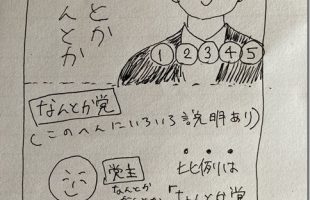 とか
んとか
① ② ③ ④ ⑤
なんとか党
(このへんにいろいろ説明あり)
党主
なんとか
比例は
「なんとか党